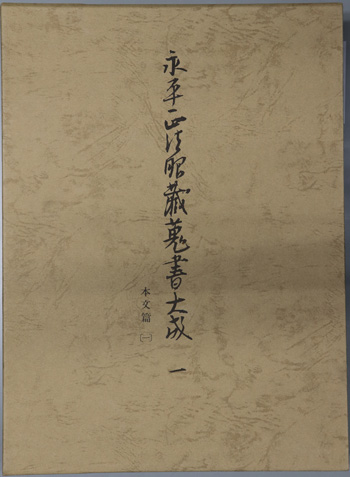 永平正法眼蔵蒐書大成 一
本文篇〔一〕